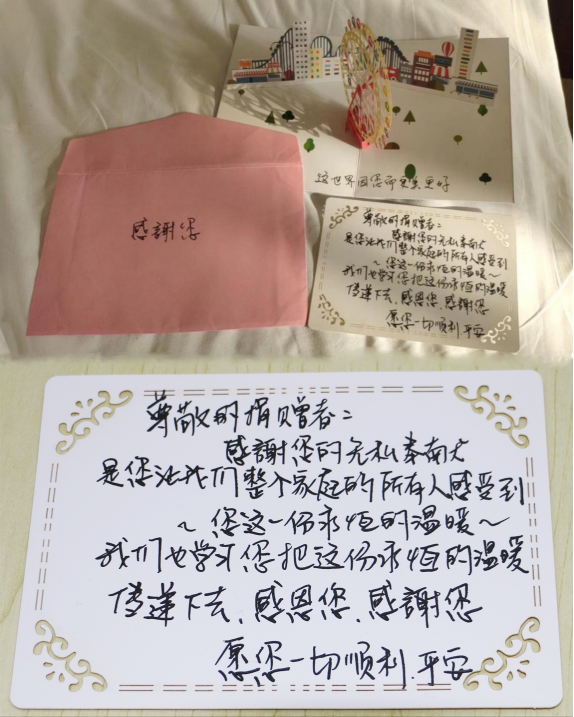 感謝您
这世界因您而更美更好
尊敬的捐赠者：
感謝您的无私奉献
是您让我们整个家庭的所有人感受到
~您这一份永恒的温暖
我们也学习您把这份永恒的温暖
传递下去、感恩您、感謝您
愿您一切顺利.平安
尊敬的捐赠者：
感謝您的无私奉献
是您让我们整个家庭的所有人感受到
~您这一份永恒的温暖~
我们也学习您把这份永恒的温暖
传递下去、感恩您、感謝您
愿您一切顺利.平安